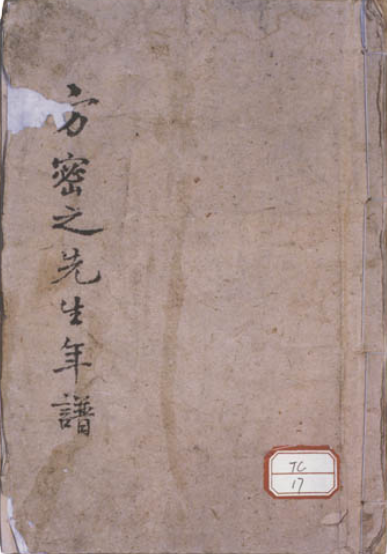 方密之先生年譜
TC
17